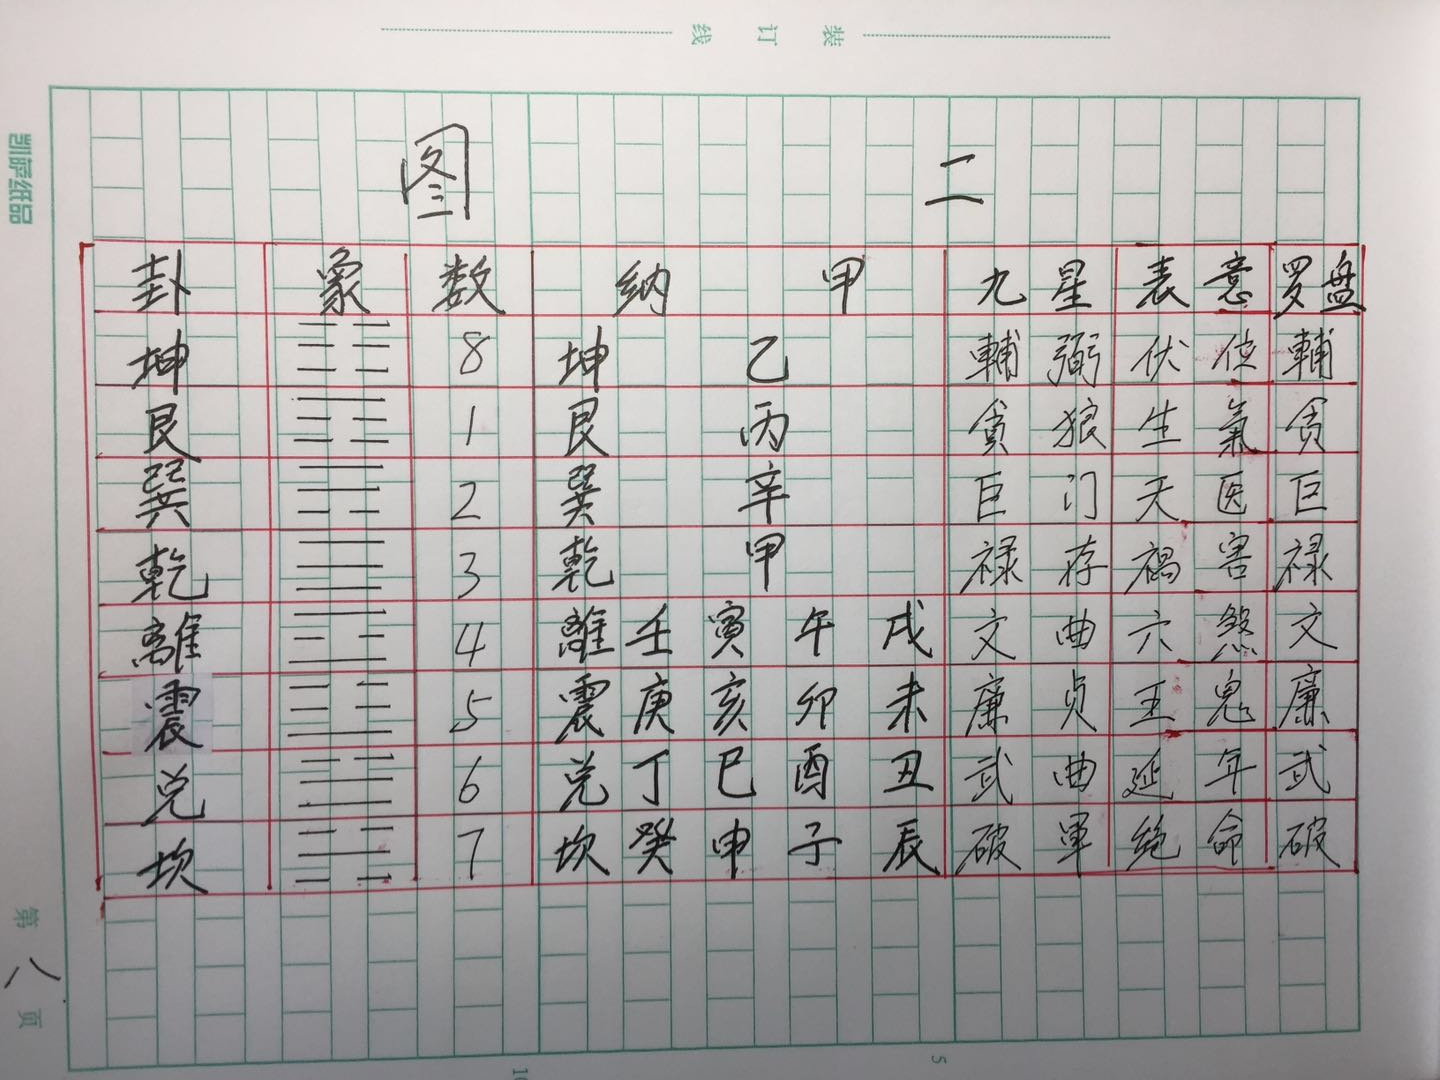 装 订 线
凯萨纸品
图 二
卦 象 数 纳 甲 九星 表意 罗盘
坤 ☷ 8 坤 乙 輔弼 伏位 輔
艮 ☶ 1 艮 丙 貪狼 生氣 贪
巽 ☴ 2 巽 辛 巨门 天医 巨
乾 ☰ 3 乾 甲 禄存 禍害 禄
離 ☲ 4 離壬寅午戌 文曲 六煞 文
震 5 震庚亥卯未 廉贞 五鬼 廉
兑 ☱ 6 兑丁巳酉丑 武曲 延年 武
坎 ☵ 7 坎癸申子辰 破軍 绝命 破
第 八 页
5
10